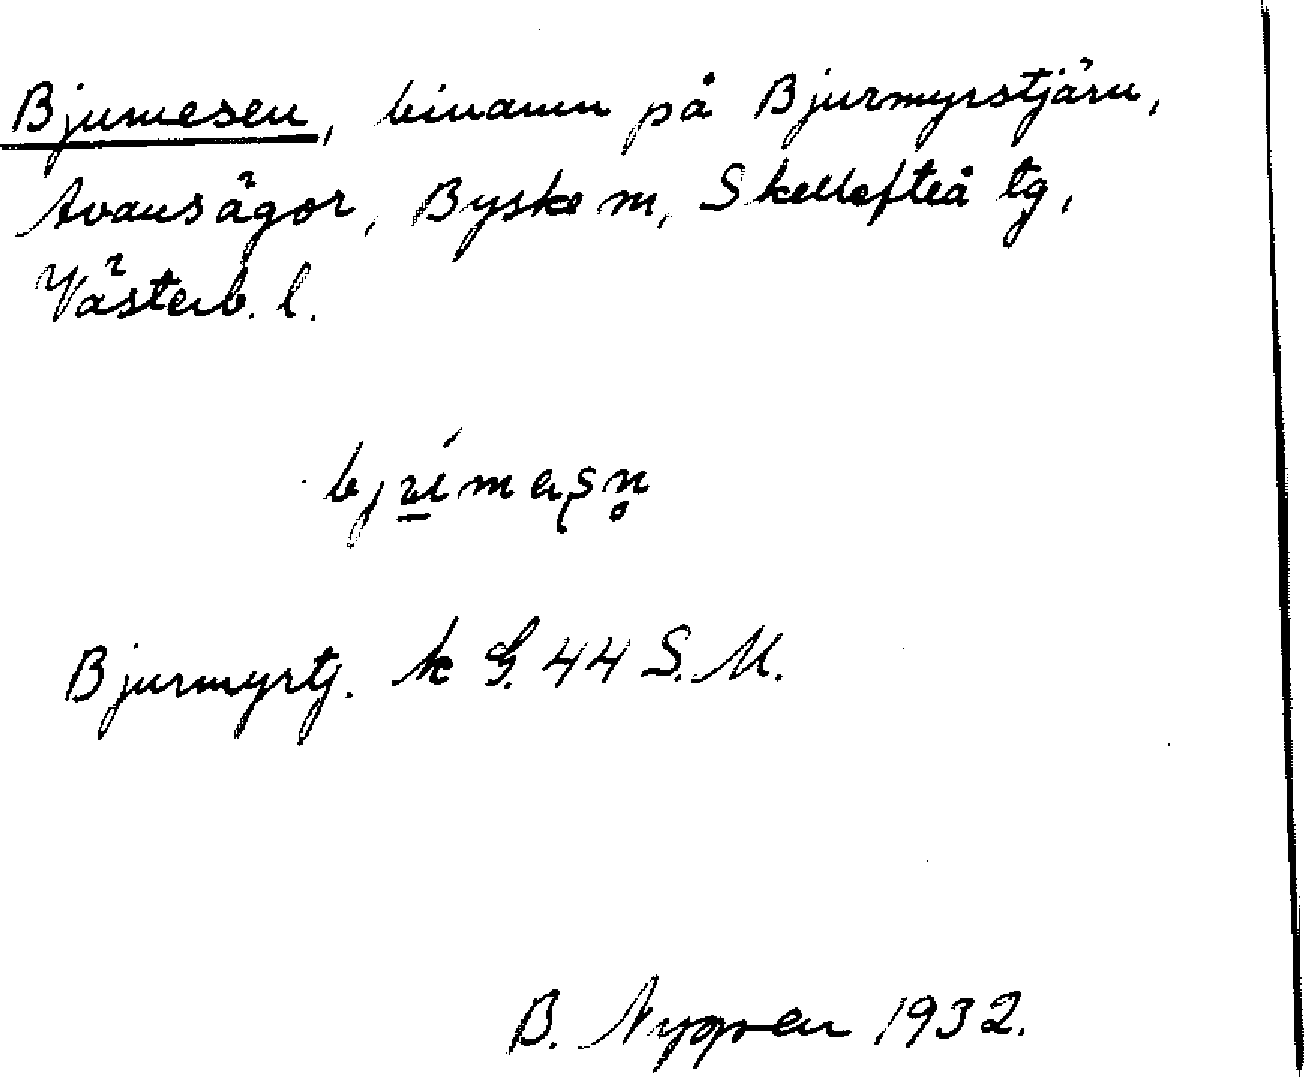 Bjumesen, binamn på Bjurmyrstjärn,
Avans ägor, Byske sn, Skellefteå tg,
Västerb. l.
Bjurmyrtj. k G. 44 S.M.
B. Nygren 1932.